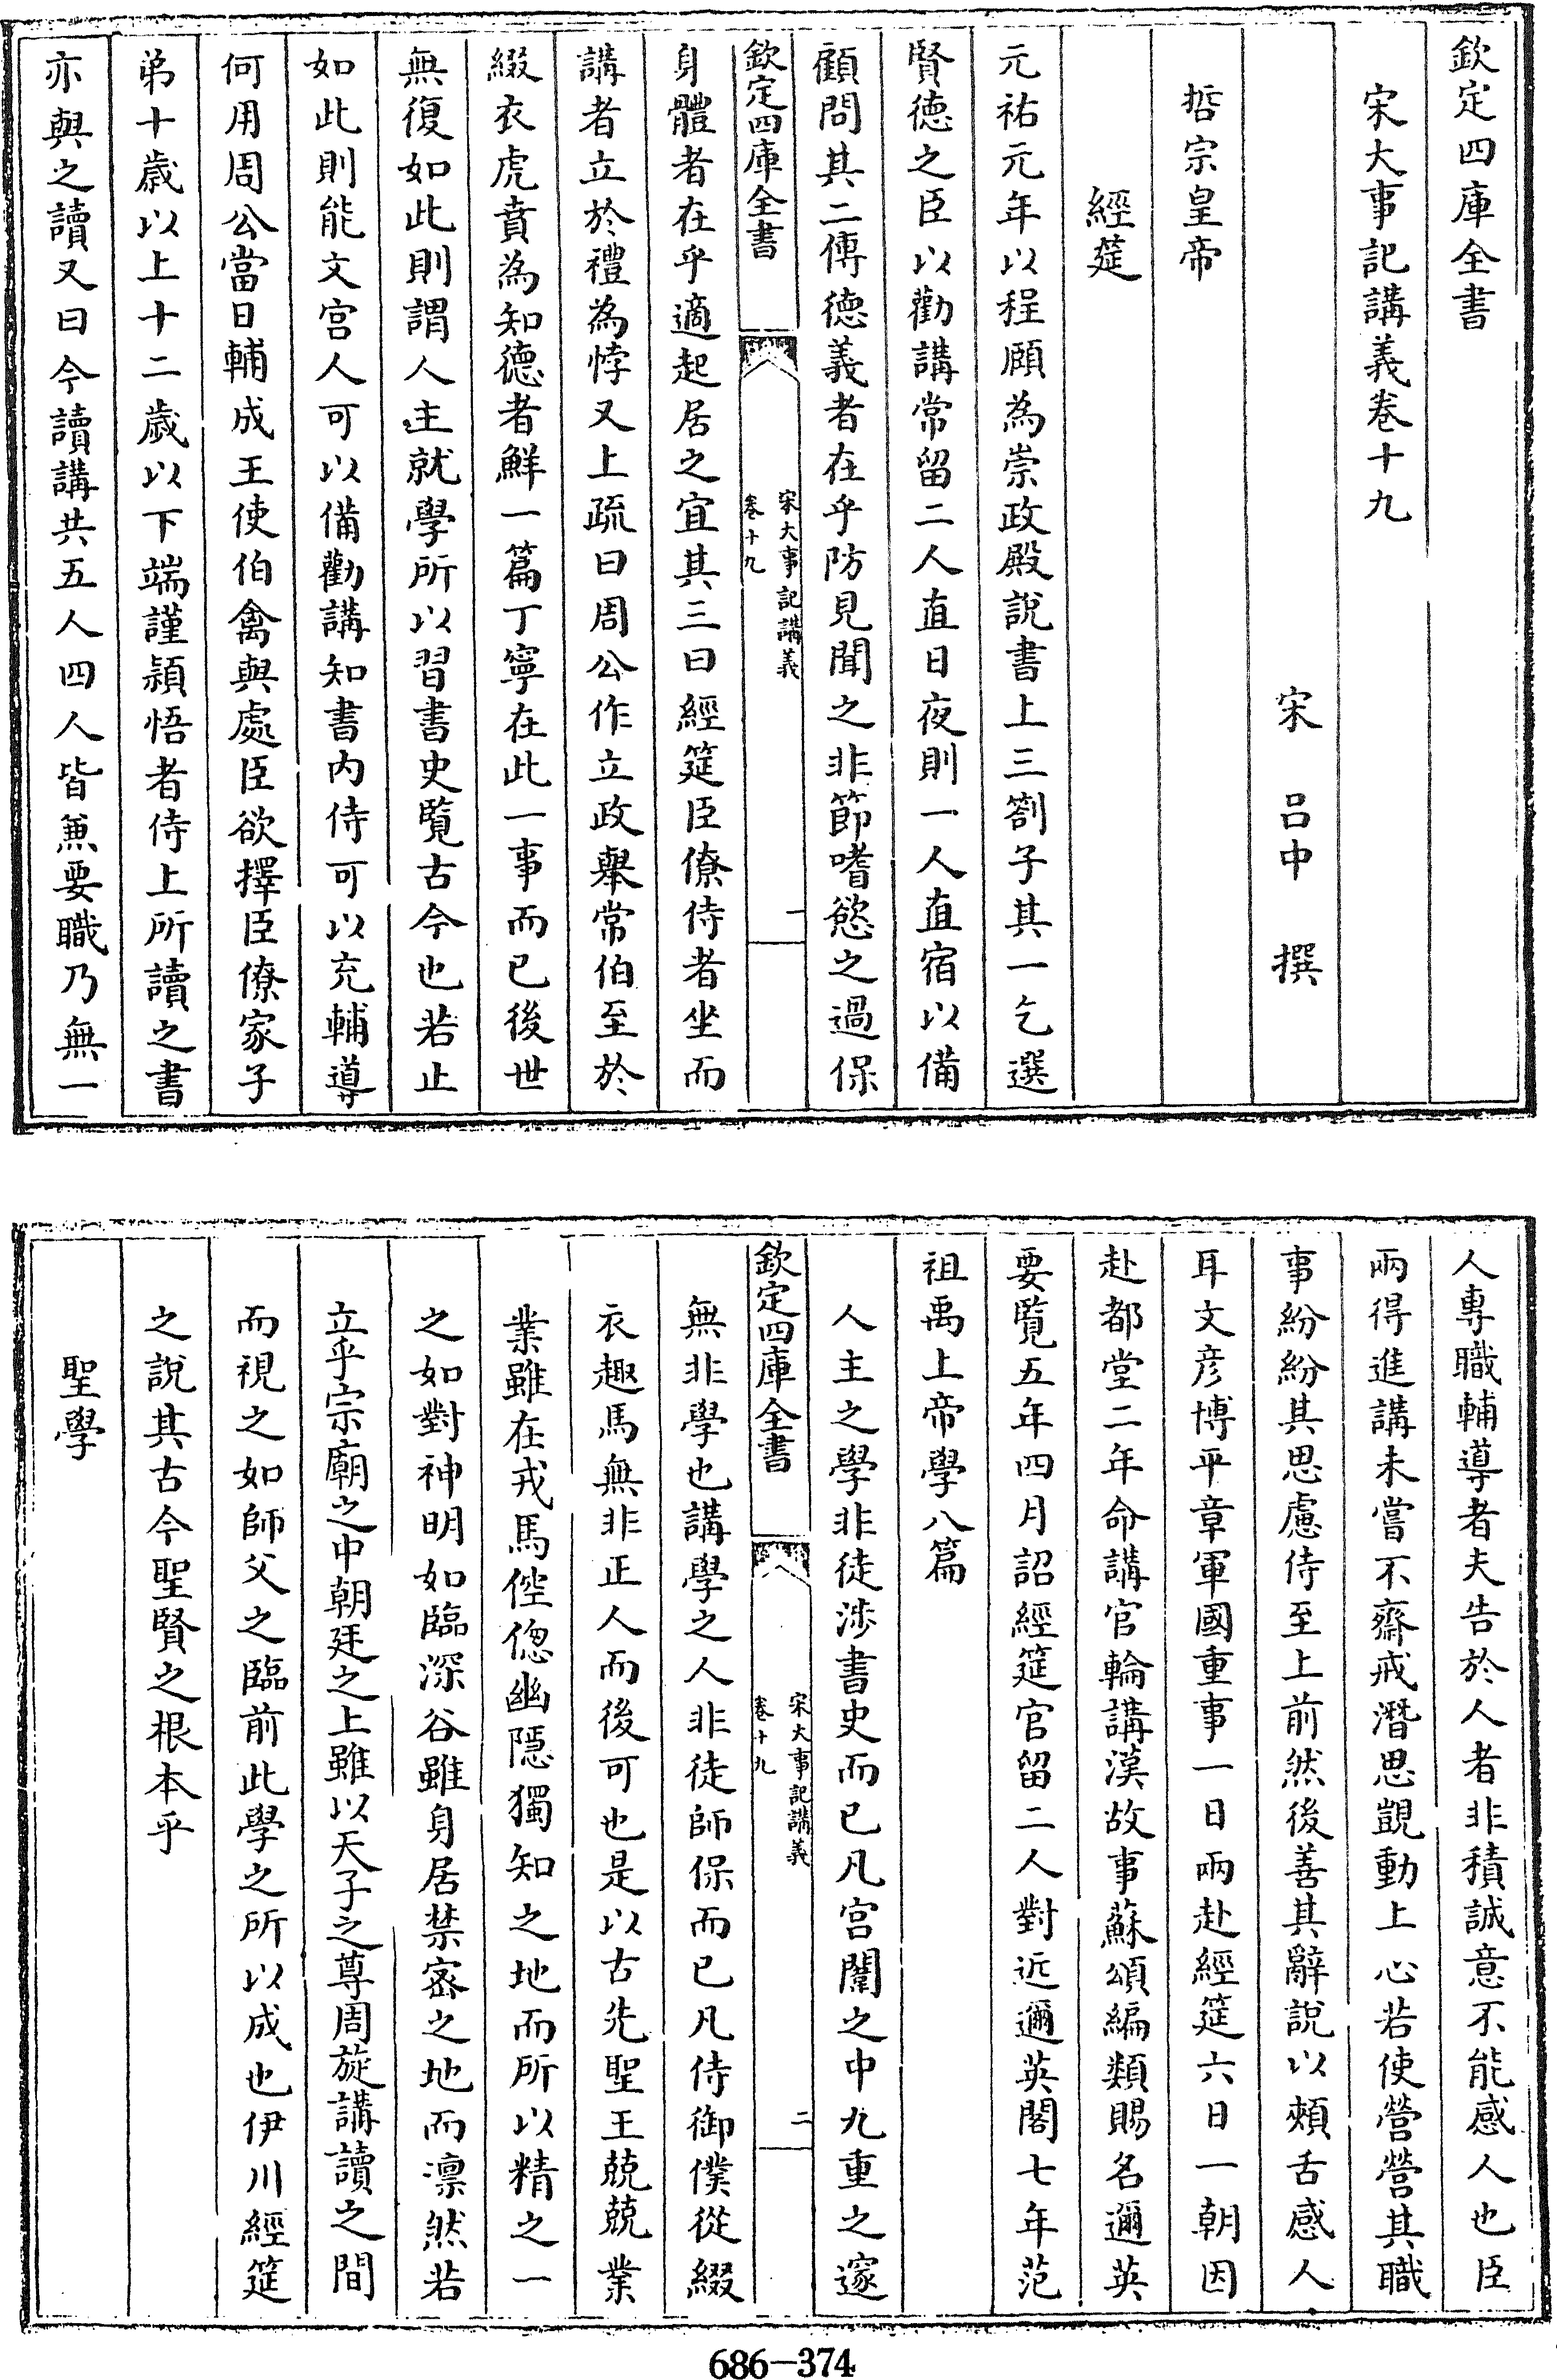 欽定四庫全書
宋大事記講義卷十九
宋 呂中 撰
哲宗皇帝
經筵
元祐元年以程頤為崇政殿說書上三劄子其一乞選
賢德之臣以勸講常留二人直日夜則一人直宿以備
顧問其二傅德義者在乎防見聞之非節嗜慾之過保
欽定四庫全書
宋大事記講義
卷十九
一
身體者在乎適起居之宜其三曰經筵臣僚侍者坐而
講者立於禮為悖又上疏曰周公作立政舉常伯至於
綴衣虎賁為知德者鮮一篇丁寧在此一事而已後世
無復如此則謂人主就學所以習書史覽古今也若止
如此則能文宮人可以備勸講知書內侍可以充輔導
何用周公當日輔成王使伯禽與處臣欲擇臣僚家子
弟十歲以上十二歲以下端謹穎悟者侍上所讀之書
亦與之讀又曰今讀講共五人四人皆兼要職乃無一
人專職輔導者夫告於人者非積誠意不能感人也臣
兩得進講未嘗不齋戒潛思覬動上心若使營營其職
事紛紛其思慮侍至上前然後善其辭說以頰舌感人
耳文彥博平章軍國重事一日兩赴經筵六日一朝因
赴都堂二年命講官輪講漢故事蘇頌編類賜名邇英
要覽五年四月詔經筵官留二人對近邇英閣七年范
祖禹上帝學八篇
人主之學非徒涉書史而已凡宮闈之中九重之邃
欽定四庫全書
宋大事記講義
卷十九
二
無非學也講學之人非徒師保而已凡侍御僕從綴
衣趣馬無非正人而後可也是以古先聖王兢兢業
業雖在戎馬倥傯幽隱獨知之地而所以精之一
之如對神明如臨深谷雖身居禁宻之地而凛然若
立乎宗廟之中朝廷之上雖以天子之尊周旋講讀之間
而視之如師父之臨前此學之所以成也伊川經筵
之說其古今聖賢之根本乎
聖學
686-374